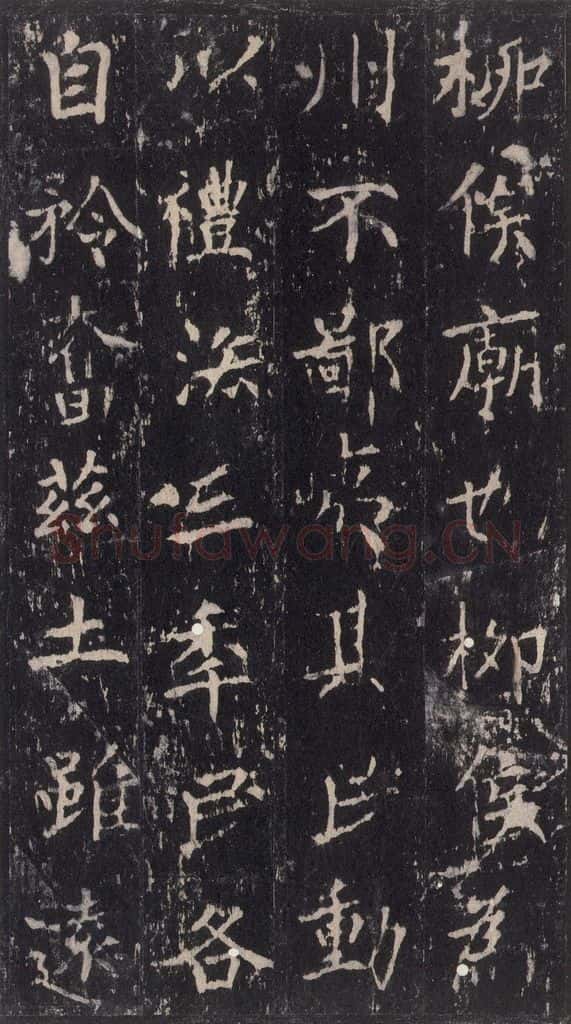 柳侯廟也柳侯為
州不鄙夷其民動
以禮法三年民各
自矜奮茲土雖遠
Shufawang.CN